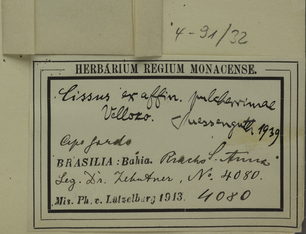 4-91/32
HERBARIUM REGIUM MONACENSE.
Cissus ex affin. pulcherrimae
Vellozo. Suessenguth. 1939
Cipo gordo
BRASILIA: Bahia. Riacho S. Anna
Leg. Dr. Zehntner, No. 4080.
Mis. Ph. v. Lützelburg 1913. 4080